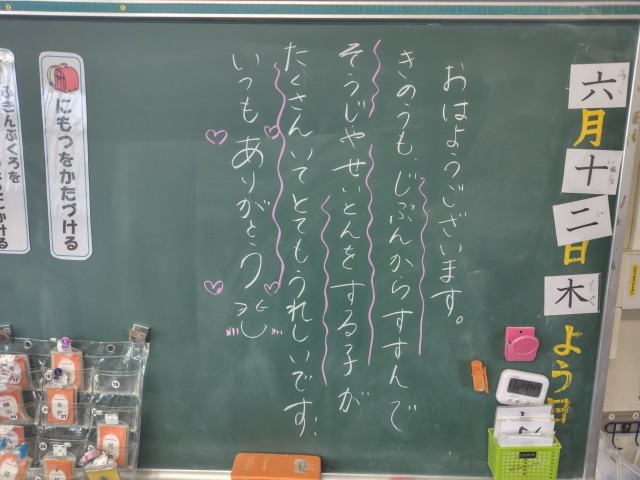 六月十二日木よう日
おはようございます。
きのうも、じぶんからすすんで
そうじやせいとんをする子が
たくさんいてとてもうれしいです。
いつもありがとう
にもつをかたづける
ふきんぶくろを